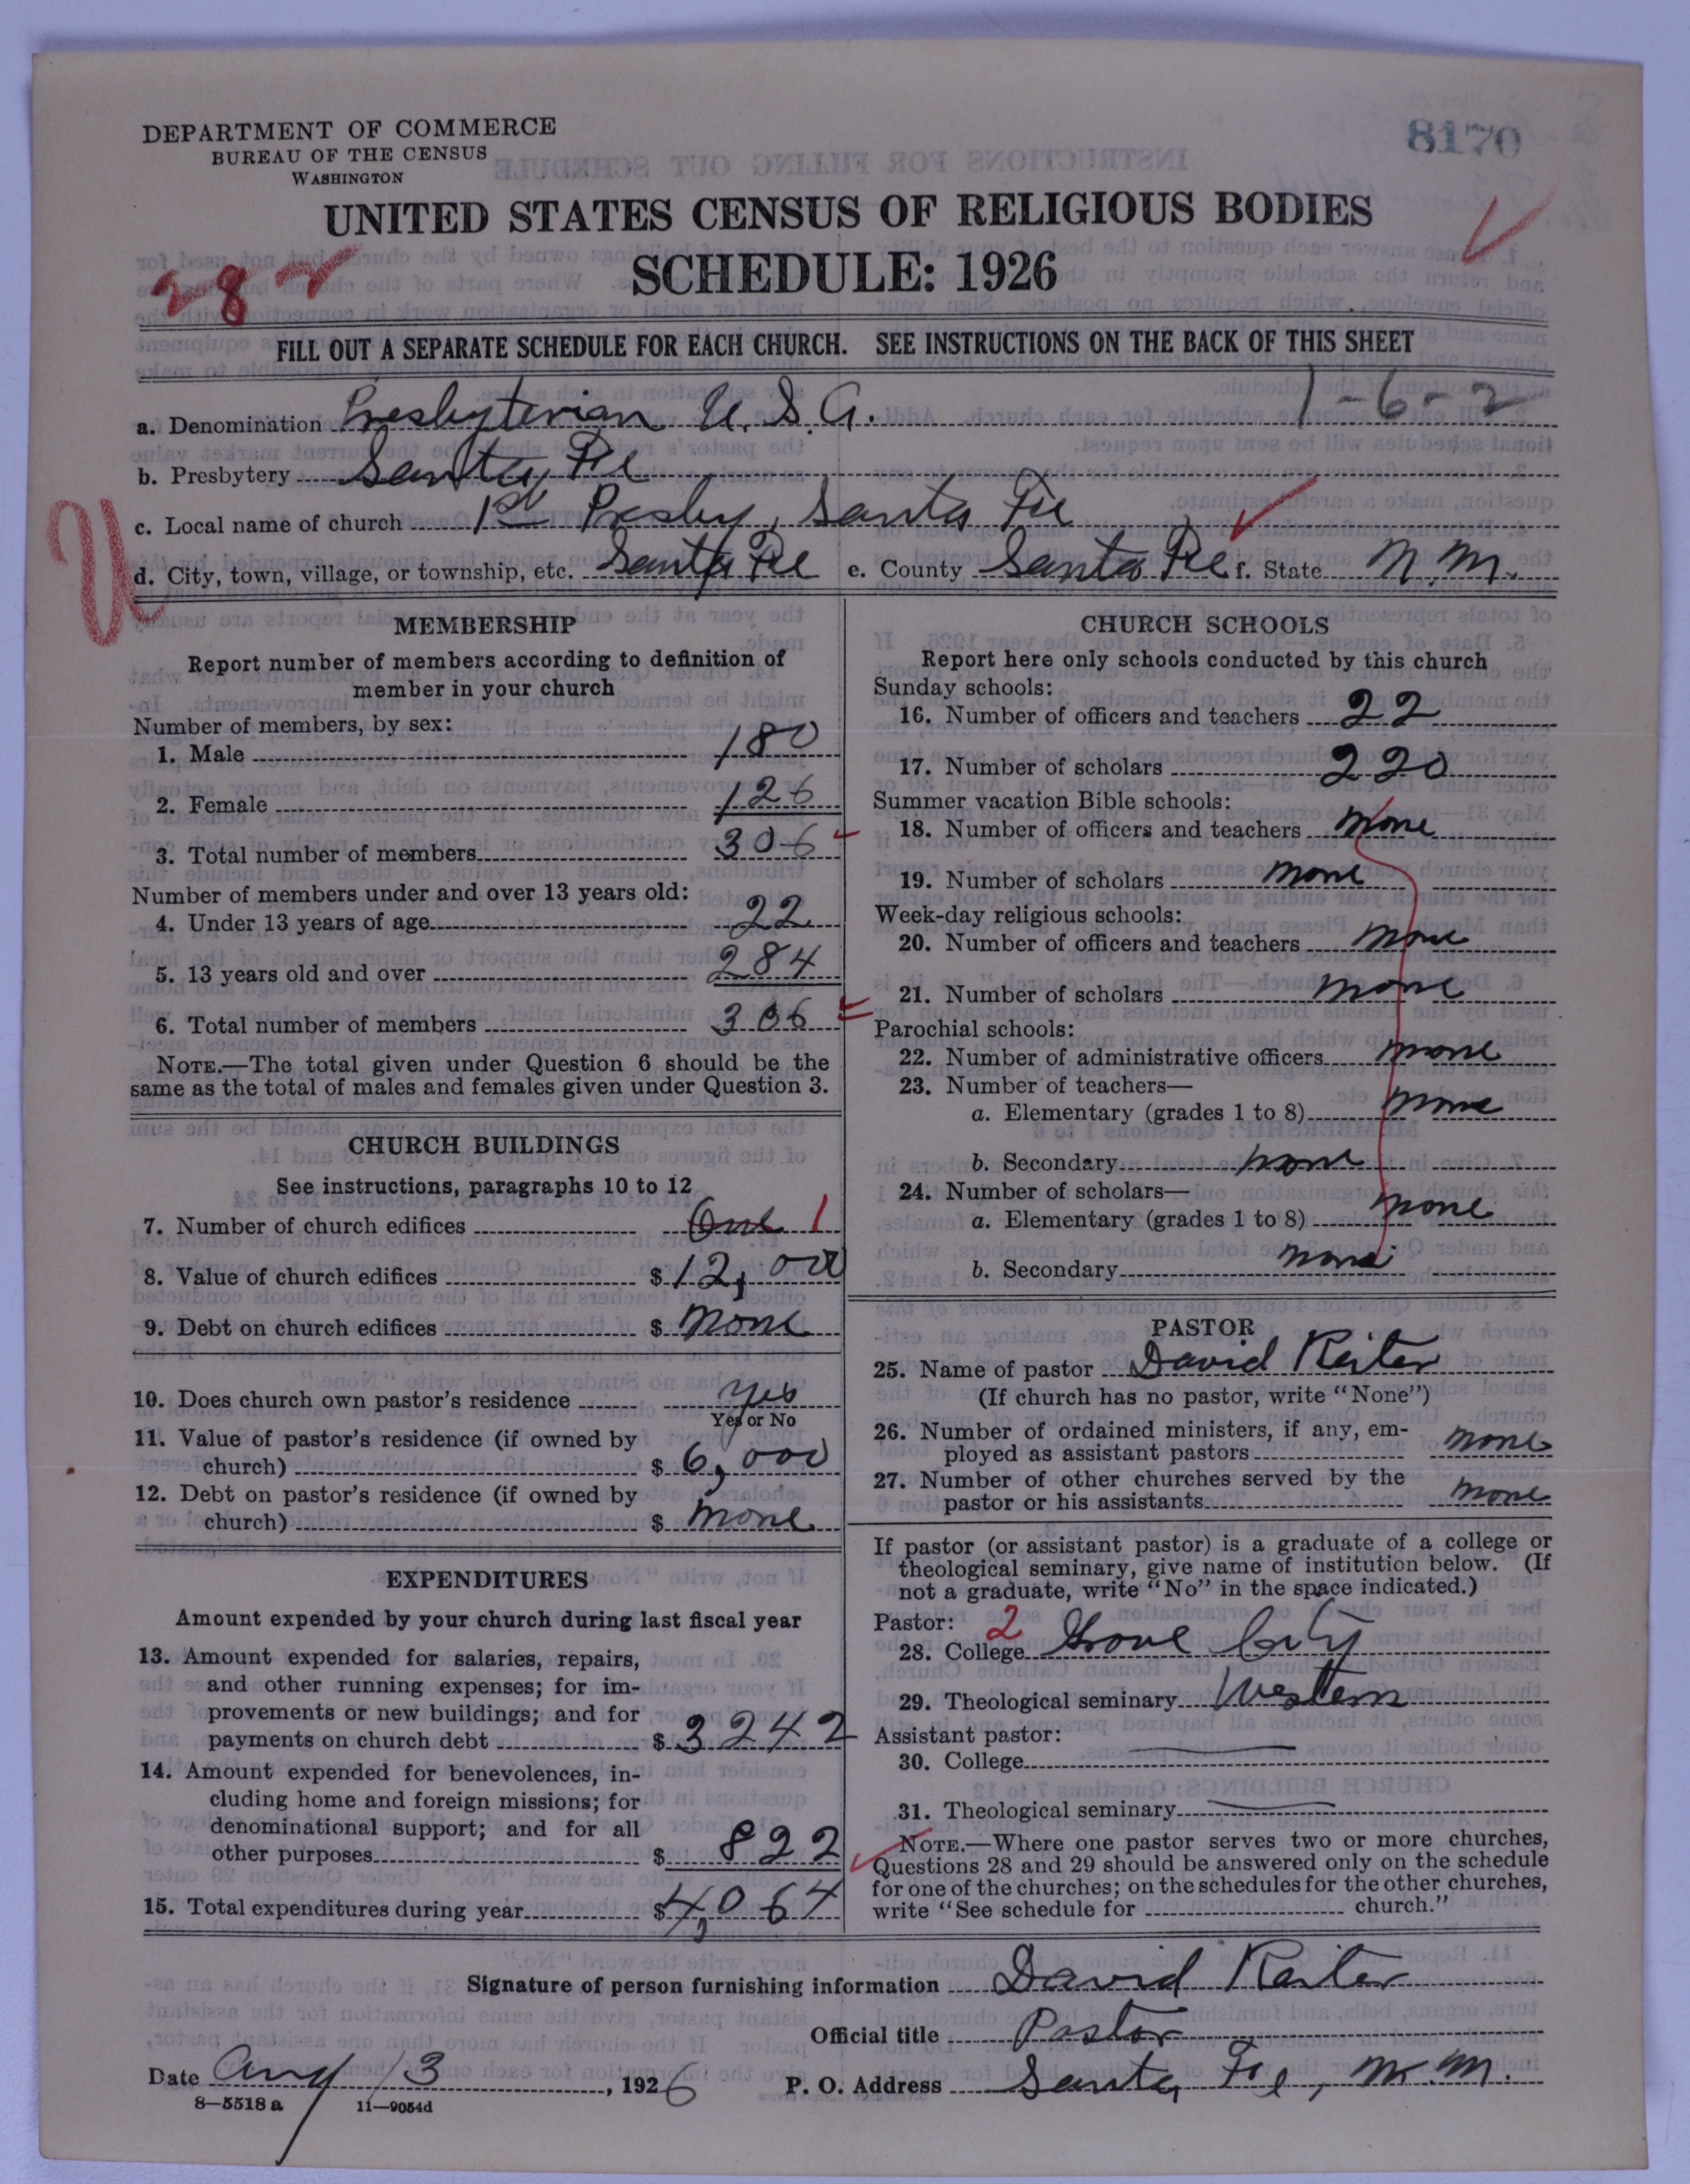 DEPARTMENT OF COMMERCE
BUREAU OF THE CENSUS
WASHINGTON
8170
UNITED STATES CENSUS OF RELIGIOUS BODIES
SCHEDULE: 1926
282
FILL OUT A SEPARATE SCHEDULE FOR EACH CHURCH. SEE INSTRUCTIONS ON THE BACK OF THIS SHEET
1-6-2
a. Denomination Presbyterian U.S.A.
b. Presbytery Santa Fe
c. Local name of church 1st Presby, Santa Fe
U
d. City, town, village, or township, etc. Santa Fe e. County Santa Fe f. State N.M.
MEMBERSHIP
Report number of members according to definition of
member in your church
Number of members, by sex:
1. Male 180
2. Female 126
3. Total number of members 306
Number of members under and over 13 years old:
4. Under 13 years of age 22
5. 13 years old and over 284
6. Total number of members 306
NOTE.—The total given under Question 6 should be the
same as the total of males and females given under Question 3.
CHURCH BUILDINGS
See instructions, paragraphs 10 to 12
7. Number of church edifices One 1
8. Value of church edifices $12,000
9. Debt on church edifices $ None
10. Does church own pastor's residence Yes
Yes or No
11. Value of pastor's residence (if owned by
church) $ 6,000
12. Debt on pastor's residence (if owned by
church) $ None
EXPENDITURES
Amount expended by your church during last fiscal year
13. Amount expended for salaries, repairs,
and other running expenses; for im-
provements or new buildings; and for
payments on church debt $ 3242
14. Amount expended for benevolences, in-
cluding home and foreign missions; for
denominational support; and for all
other purposes $ 822
15. Total expenditures during year $4,064
CHURCH SCHOOLS
Report here only schools conducted by this church
Sunday schools:
16. Number of officers and teachers 22
17. Number of scholars 220
Summer vacation Bible schools:
18. Number of officers and teachers None
19. Number of scholars None
Week-day religious schools:
20. Number of officers and teachers None
21. Number of scholars None
Parochial schools:
22. Number of administrative officers None
23. Number of teachers—
a. Elementary (grades 1 to 8) None
b. Secondary None
24. Number of scholars—
a. Elementary (grades 1 to 8) None
b. Secondary None
PASTOR
25. Name of pastor David Reiter
(If church has no pastor, write "None")
26. Number of ordained ministers, if any, em-
ployed as assistant pastors None
27. Number of other churches served by the
pastor or his assistants None
If pastor (or assistant pastor) is a graduate of a college or
theological seminary, give name of institution below. (If
not a graduate, write "No" in the space indicated.)
Pastor: 2
28. College Grove City
29. Theological seminary Western
Assistant pastor:
30. College
31. Theological seminary
NOTE.—Where one pastor serves two or more churches,
Questions 28 and 29 should be answered only on the schedule
for one of the churches; on the schedules for the other churches,
write "See schedule for church."
Signature of person furnishing information David Reiter
Official title Pastor
Date Aug 13, 1926 P. O. Address Santa Fe, N.M.
8—5518 a 11—9054d